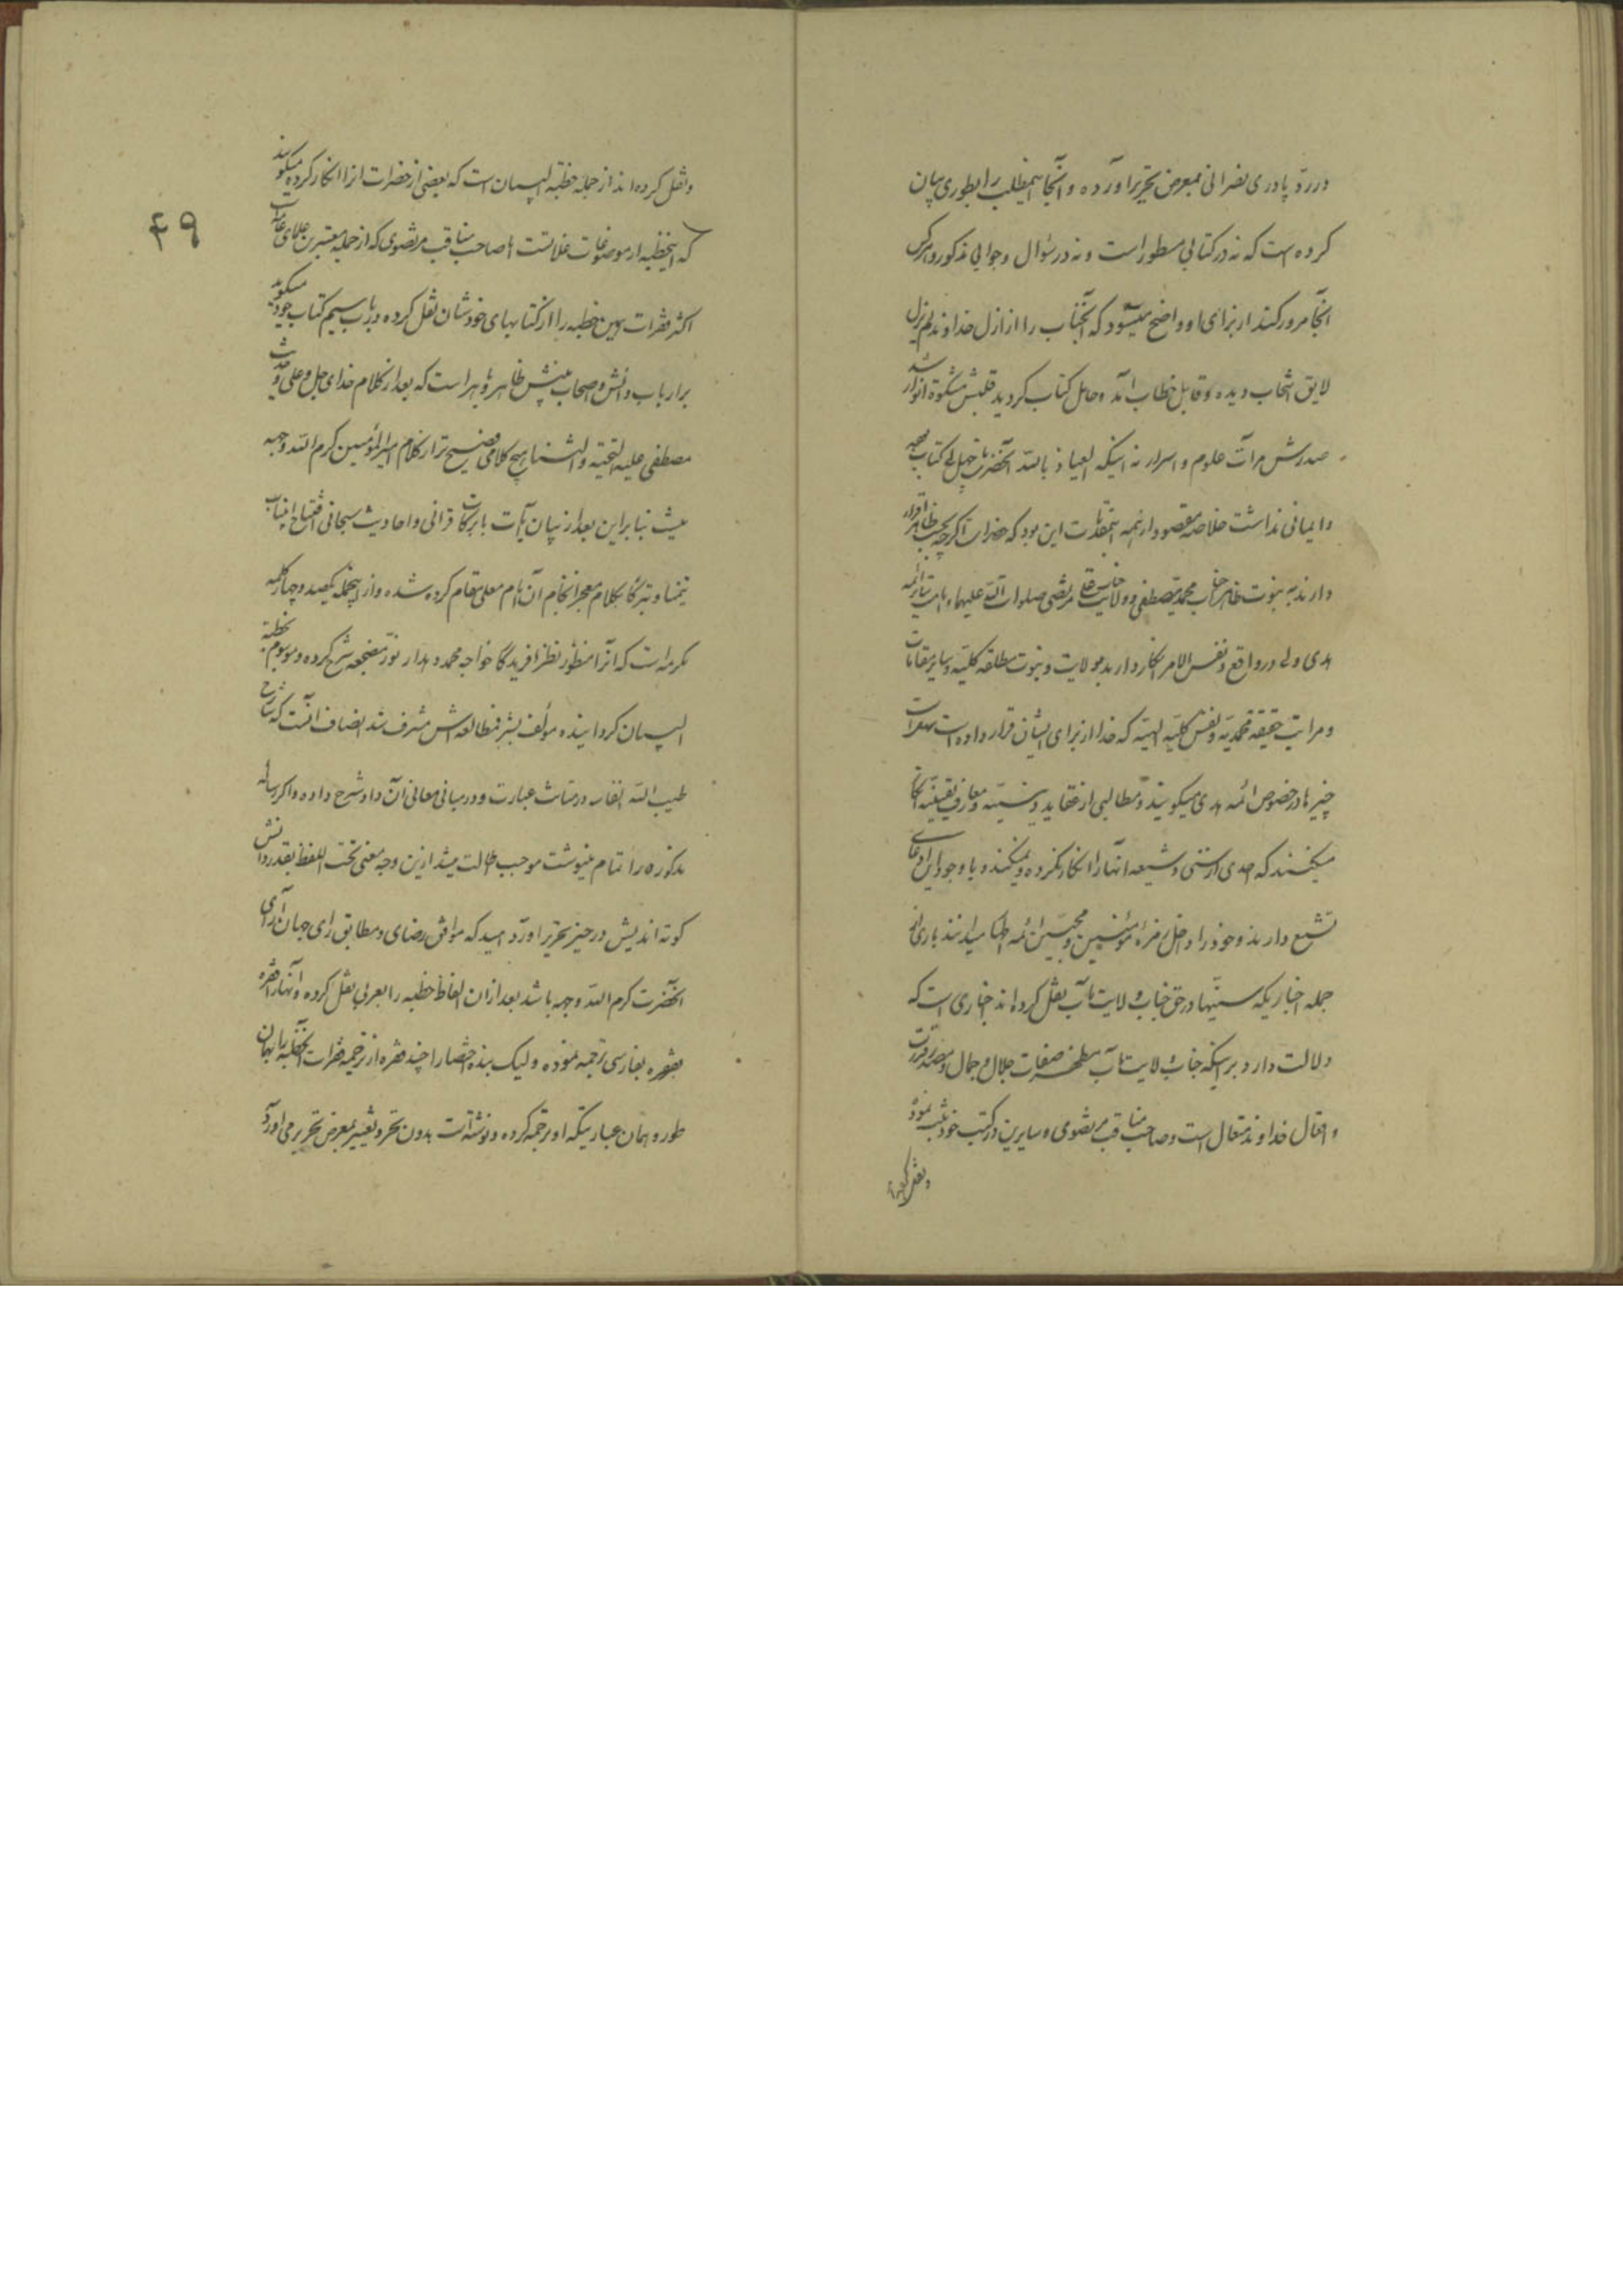 در ردّ پادری نصرانی بمعرض تحریر آورده و آنجا اینمطلب را بطوری بیان
کرده است که نه در کتابی مسطور است و نه در سؤال و جوابی مذکور و هرکس
آنجا مرور کند از برای او واضح میشود که آنجناب را از ازل خداوند لم یزل
لایق انتخاب دیده و قابل خطاب آمد و حامل کتاب گردید قلبش مشکوة انوار شد
صدرش مرآت علوم و اسرار نه اینکه العیاذ بالله آنحضرت تا چهل
و ایمانی نداشت خلاصه مقصود از همه این بود که حضرات اگرچه بحسب ظاهر اقرار
دارند به نبوت جناب محمد مصطفی و ولایت جناب علی مرتضی صلوات الله علیهما و امامت سایر ائمه
هدی ولی در واقع و نفس الامر انکار دارند بولایت و نبوت مطلقه کلیّه و سایر مقامات
و مراتب حقیقة محمدیّه و نفس کلیّه الهیّه که خدا از برای ایشان قرار داده است
چیزها در خصوص ائمه هدی میگویند و مطالبی از عقاید و معارف یقینیّه انکار
میکنند که احدی از سنّی و شیعه آنها را انکار نکرده و نمیکند و با وجود این ادعای
تشیع دارند و خود را داخل زمرهٔ مؤمنین و محبّین ائمه اطهار میدانند باری از
جمله اخباریکه سنّیها در حق جناب ولایتمآب نقل کرده‌اند اخباری است که
دلالت دارد بر اینکه جناب ولایتمآب مظهر صفات جلال و جمال و مصدر قدرت
و افعال خداوند متعال است و صاحب مناقب مرتضوی و سایرین در کتب خود ثبت نموده
و نقل کرده
۴۹
و نقل کرده‌اند از جمله خطبة البیان است که بعضی از حضرات آنرا انکار کرده میگویند
که اینخطبه از موضوعات غلاتست اما صاحب مناقب مرتضوی که از جمله معتبرین علمای عامه است
اکثر فقرات همین خطبه را از کتابهای خودشان نقل کرده در باب سیم کتاب خود میگوید
بر ارباب دانش و اصحاب بینش ظاهر و باهر است که بعد از کلام خدای جل و علی و حدیث
مصطفی علیه التحیّة و الثنا هیچ کلامی فصیح‌تر از کلام امیرالمؤمنین کرم الله وجهه
نیست بنابراین بعد از بیان آیات بابرکات قرآنی و احادیث سبحانی افتتاح اینباب
تیمّناً و تبرّکاً بکلام معجز انجام آن امام معلی مقام کرده شده و از اینجمله یکصد و چهار کلمه
مکرمه است که آنرا خواجه محمد دهدار نوّر مضجعه شرح کرده و موسوم بخطبة
البیان گردانیده مؤلف بشرف مطالعه‌اش مشرف شد انصاف آنست که شارح
طیب الله انفاسه در متانت عبارت و در مبانی معانی آن داد شرح داده و اگر رساله
مذکوره را تمام مینوشت موجب اطالت میشد ازین وجه معنی تحت اللفظ بقدر دانش
کوته‌اندیش در حیّز تحریر آورد امید که موافق رضای و مطابق رای جهان آرای
آنحضرت کرم الله وجهه باشد بعد از آن الفاظ خطبه را بعربی نقل کرده و آنها را فقره
بفقره بفارسی ترجمه نموده ولیک بنده اختصارا چند فقره از ترجمه فقرات آنخطبه را بهمان
طور و همان عباریتکه او ترجمه کرده و نوشته است بدون تغییر بمعرض تحریر می‌آورد